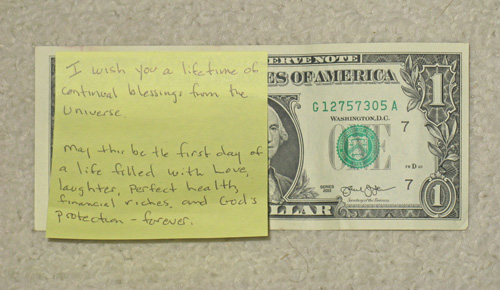 I wish you a lifetime of
continual blessings from the
Universe.
May this be the first day of
a life filled with Love,
laughter, perfect health,
financial riches, and God's
protection - forever.
ERVE NOTE
ES OF AMERICA
1
G 12757305 A
WASHINGTON, D.C.
7
ONE
SERIES
2013
7
Secretary of the Treasury
1
DOLLAR